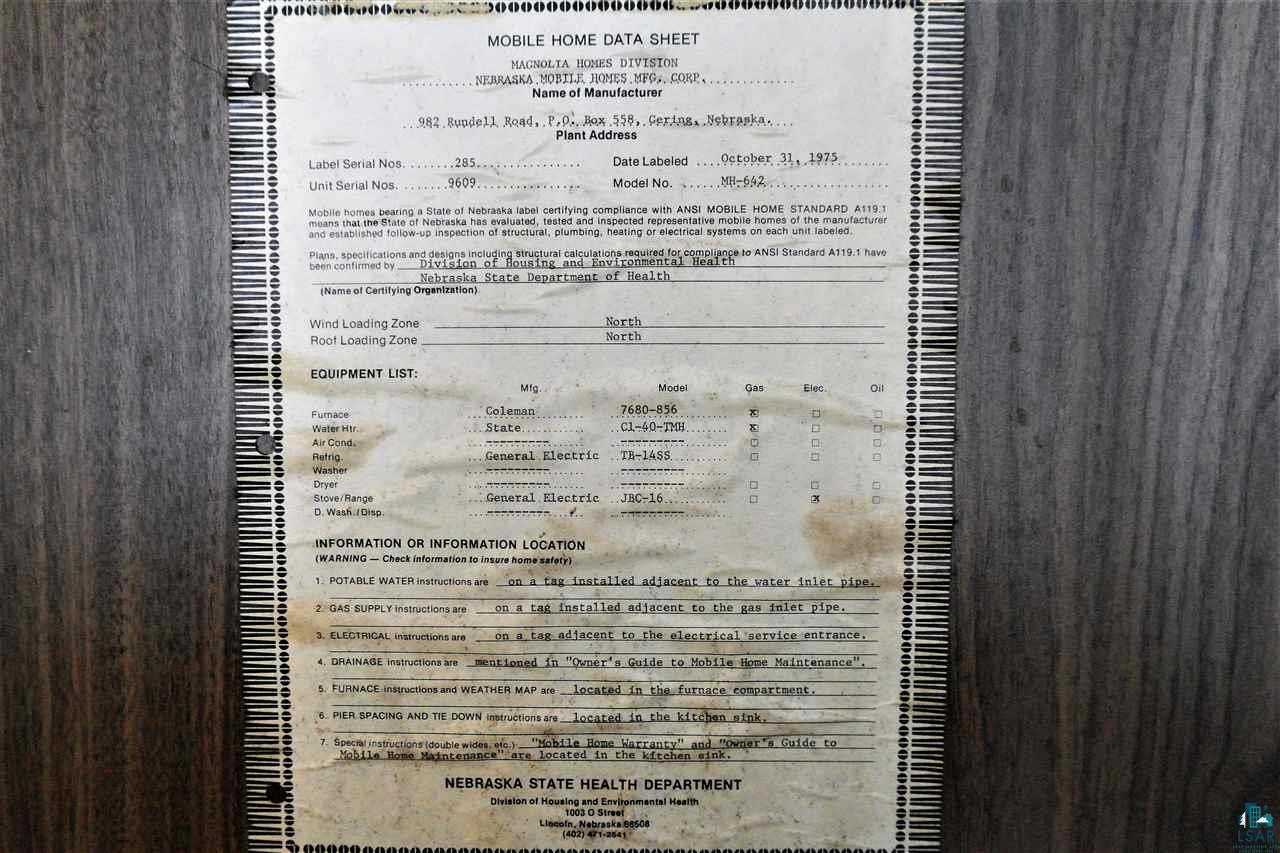 MOBILE HOME DATA SHEET
MAGNOLIA HOMES DIVISION
NEBRASKA MOBILE HOMES MFG. CORP.
Name of Manufacturer
982 Rundell Road, P.O. Box 558, Gering, Nebraska.
Plant Address
Label Serial Nos. 285 Date Labeled October 31, 1975
Unit Serial Nos. 9609 Model No. MH-642
Mobile homes bearing a State of Nebraska label certifying compliance with ANSI MOBILE HOME STANDARD A119.1
means that the State of Nebraska has evaluated, tested and inspected representative mobile homes of the manufacturer
and established follow-up inspection of structural, plumbing, heating or electrical systems on each unit labeled.
Plans, specifications and designs including structural calculations required for compliance to ANSI Standard A119.1 have
been confirmed by Division of Housing and Environmental Health
Nebraska State Department of Health
(Name of Certifying Organization)
Wind Loading Zone North
Roof Loading Zone North
EQUIPMENT LIST:
Mfg. Model Gas Elec. Oil
Furnace Coleman 7680-856 x
Water Htr. State C1-40-TMH x
Air Cond. --------- ---------
Refrig. General Electric TB-14SS
Washer --------- ---------
Dryer --------- ---------
Stove/Range General Electric JBC-16 x
D. Wash./Disp. --------- ---------
INFORMATION OR INFORMATION LOCATION
(WARNING — Check information to insure home safety)
1. POTABLE WATER instructions are on a tag installed adjacent to the water inlet pipe.
2. GAS SUPPLY instructions are on a tag installed adjacent to the gas inlet pipe.
3. ELECTRICAL instructions are on a tag adjacent to the electrical service entrance.
4. DRAINAGE instructions are mentioned in "Owner's Guide to Mobile Home Maintenance".
5. FURNACE instructions and WEATHER MAP are located in the furnace compartment.
6. PIER SPACING AND TIE DOWN instructions are located in the kitchen sink.
7. Special instructions (double wides, etc.) "Mobile Home Warranty" and "Owner's Guide to
Mobile Home Maintenance" are located in the kitchen sink.
NEBRASKA STATE HEALTH DEPARTMENT
Division of Housing and Environmental Health
1003 O Street
Lincoln, Nebraska 68508
(402) 471-2541
LSAR